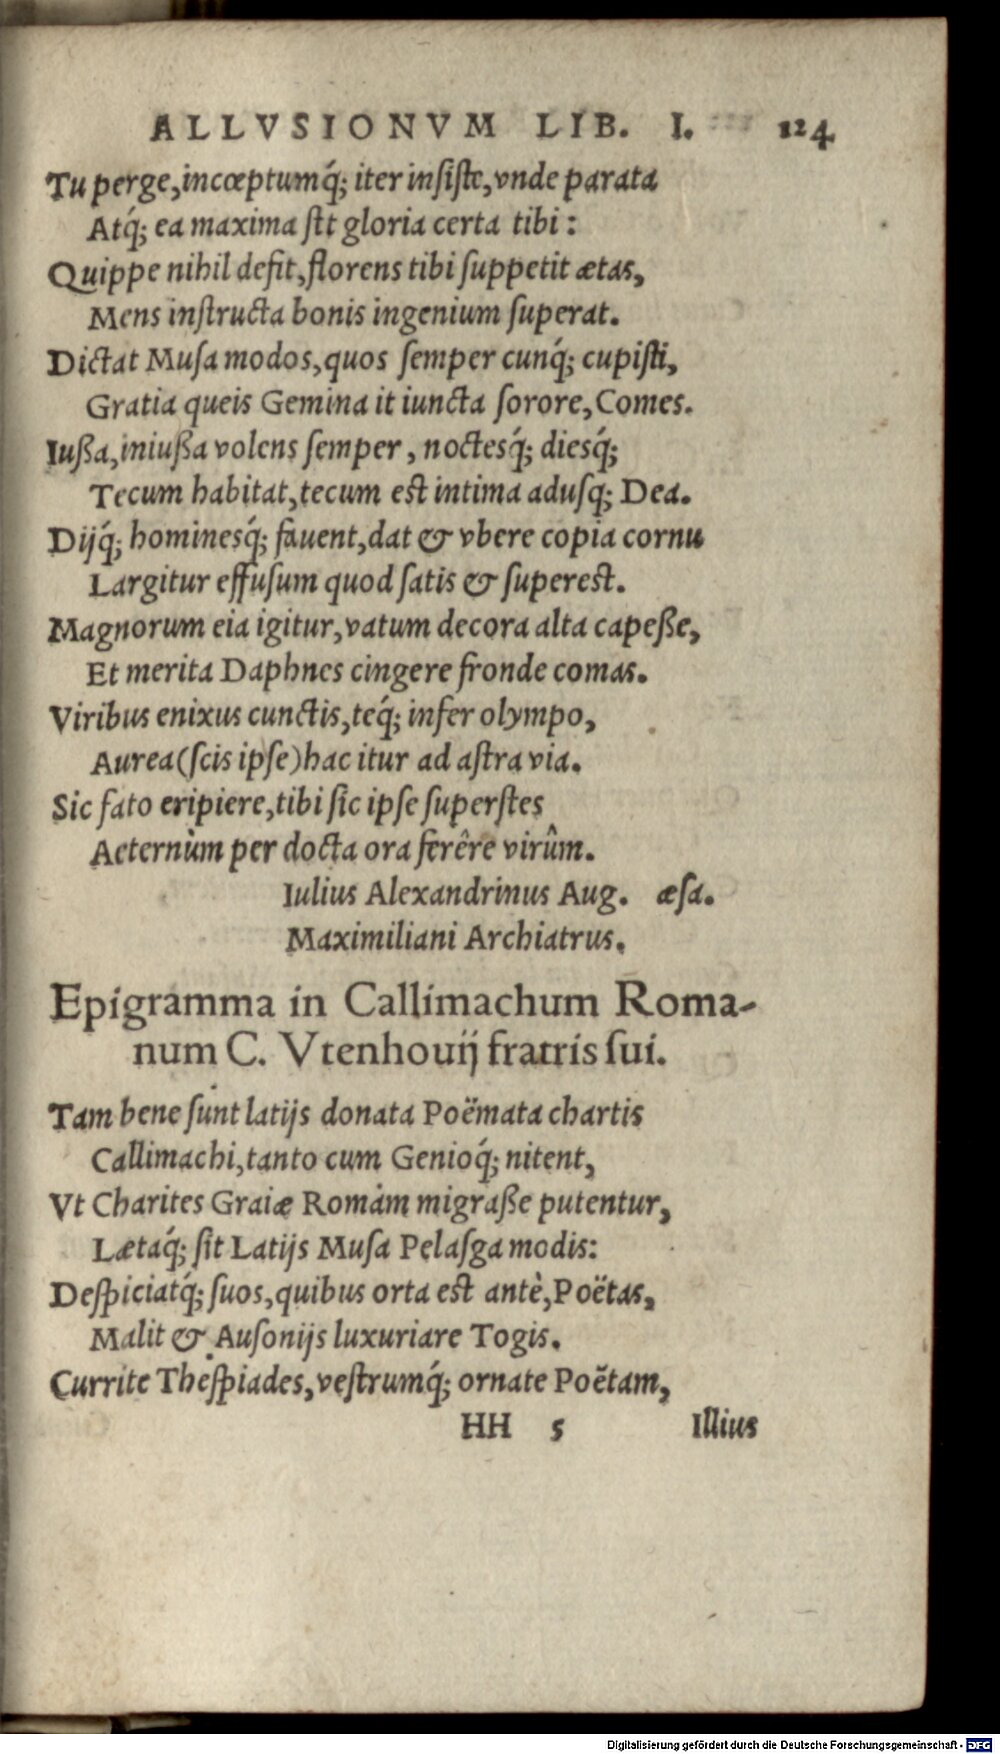 ALLVSIONVM LIB. I. 124
Tu perge, incœptumq́; iter insiste, vnde parata
Atq́; ea maxima sit gloria certa tibi:
Quippe nihil defit, florens tibi suppetit ætas,
Mens instructa bonis ingenium superat.
Dictat Musa modos, quos semper cunq́; cupisti,
Gratia queis Gemina it iuncta sorore, Comes.
Iußa, iniußa volens semper, noctesq́; diesq́;
Tecum habitat, tecum est intima adusq; Dea.
Dijq́; hominesq́; fauent, dat & vbere copia cornu
Largitur effusum quod satis & superest.
Magnorum eia igitur, vatum decora alta capeße,
Et merita Daphnes cingere fronde comas.
Viribus enixus cunctis, teq́; infer olympo,
Aurea (scis ipse) hac itur ad astra via.
Sic fato eripiere, tibi sic ipse superstes
Aeternùm per docta ora ferêre virûm.
Iulius Alexandrinus Aug. æsa.
Maximiliani Archiatrus.
Epigramma in Callimachum Roma-
num C. Vtenhouij fratris sui.
Tam bene sunt latijs donata Poëmata chartis
Callimachi, tanto cum Genioq́; nitent,
Vt Charites Graiæ Romam migraße putentur,
Lætaq́; sit Latijs Musa Pelasga modis:
Despiciatq́; suos, quibus orta est antè, Poëtas,
Malit & Ausonijs luxuriare Togis.
Currite Thespiades, vestrumq́; ornate Poëtam,
HH 5 Illius
Digitalisierung gefördert durch die Deutsche Forschungsgemeinschaft - DFG